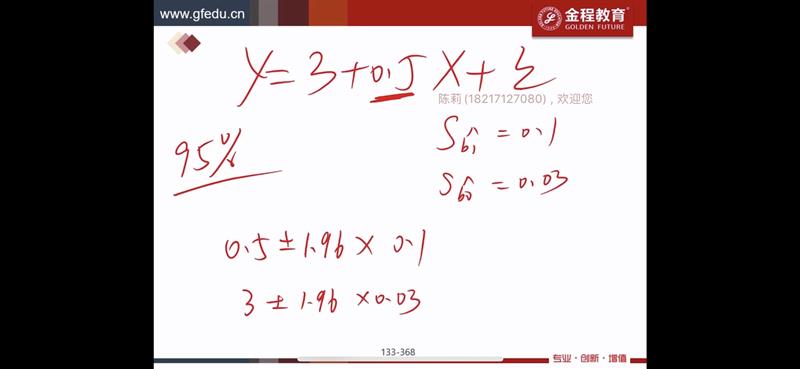 www.gfedu.cn
金程教育®
GOLDEN FUTURE
Y = 3 + 0.5 X + ξ
陈莉 (18217127080)，欢迎您
95%
S b̂₁ = 0.1
S b̂₀ = 0.03
0.5 ± 1.96 × 0.1
3 ± 1.96 × 0.03
133-368
专业·创新·增值